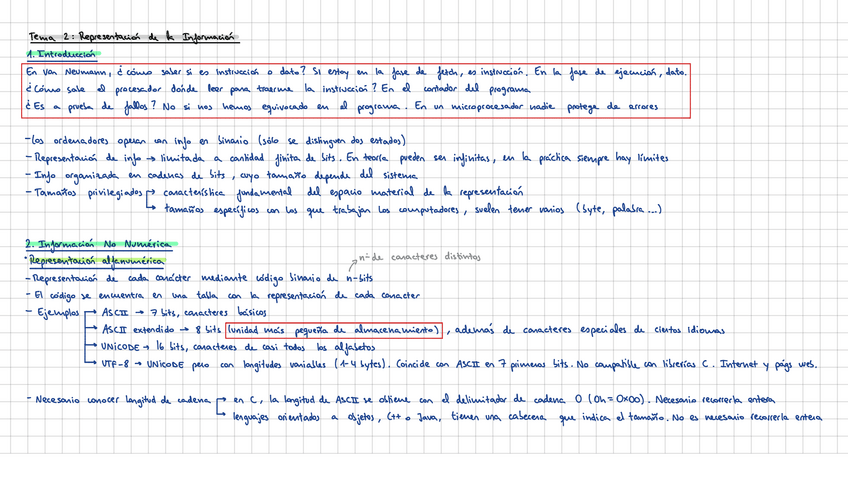 Tema 2: Representación de la Información
1. Introducción
En Von Neumann, ¿cómo saber si es instrucción o dato? Si estoy en la fase de fetch, es instrucción. En la fase de ejecución, dato.
¿Cómo sabe el procesador dónde leer para traerme la instrucción? En el contador del programa
¿Es a prueba de fallos? No si nos hemos equivocado en el programa. En un microprocesador nadie protege de errores
-Los ordenadores operan con info en binario (sólo se distinguen dos estados)
-Representación de info → limitada a cantidad finita de bits. En teoría pueden ser infinitas, en la práctica siempre hay límites
-Info organizada en cadenas de bits, cuyo tamaño depende del sistema
-Tamaños privilegiados → característica fundamental del espacio material de la representación
→ tamaños específicos con los que trabajan los computadores, suelen tener varios (byte, palabra ...)
2. Información No Numérica
· Representación alfanumérica
nº de caracteres distintos
-Representación de cada carácter mediante código binario de n-bits
- El código se encuentra en una tabla con la representación de cada caracter
- Ejemplos → ASCII → 7 bits, caracteres básicos
→ ASCII extendido → 8 bits (unidad más pequeña de almacenamiento), además de caracteres especiales de ciertos idiomas
→ UNICODE → 16 bits, caracteres de casi todos los alfabetos
→ UTF-8 → UNICODE pero con longitudes variables (1-4 bytes). Coincide con ASCII en 7 primeros bits. No compatible con librerías C. Internet y págs web.
- Necesario conocer longitud de cadena → en C, la longitud de ASCII se obtiene con el delimitador de cadena 0 (0h = 0x00). Necesario recorrerla entera
→ lenguajes orientados a objetos, C++ o Java, tienen una cabecera que indica el tamaño. No es necesario recorrerla entera